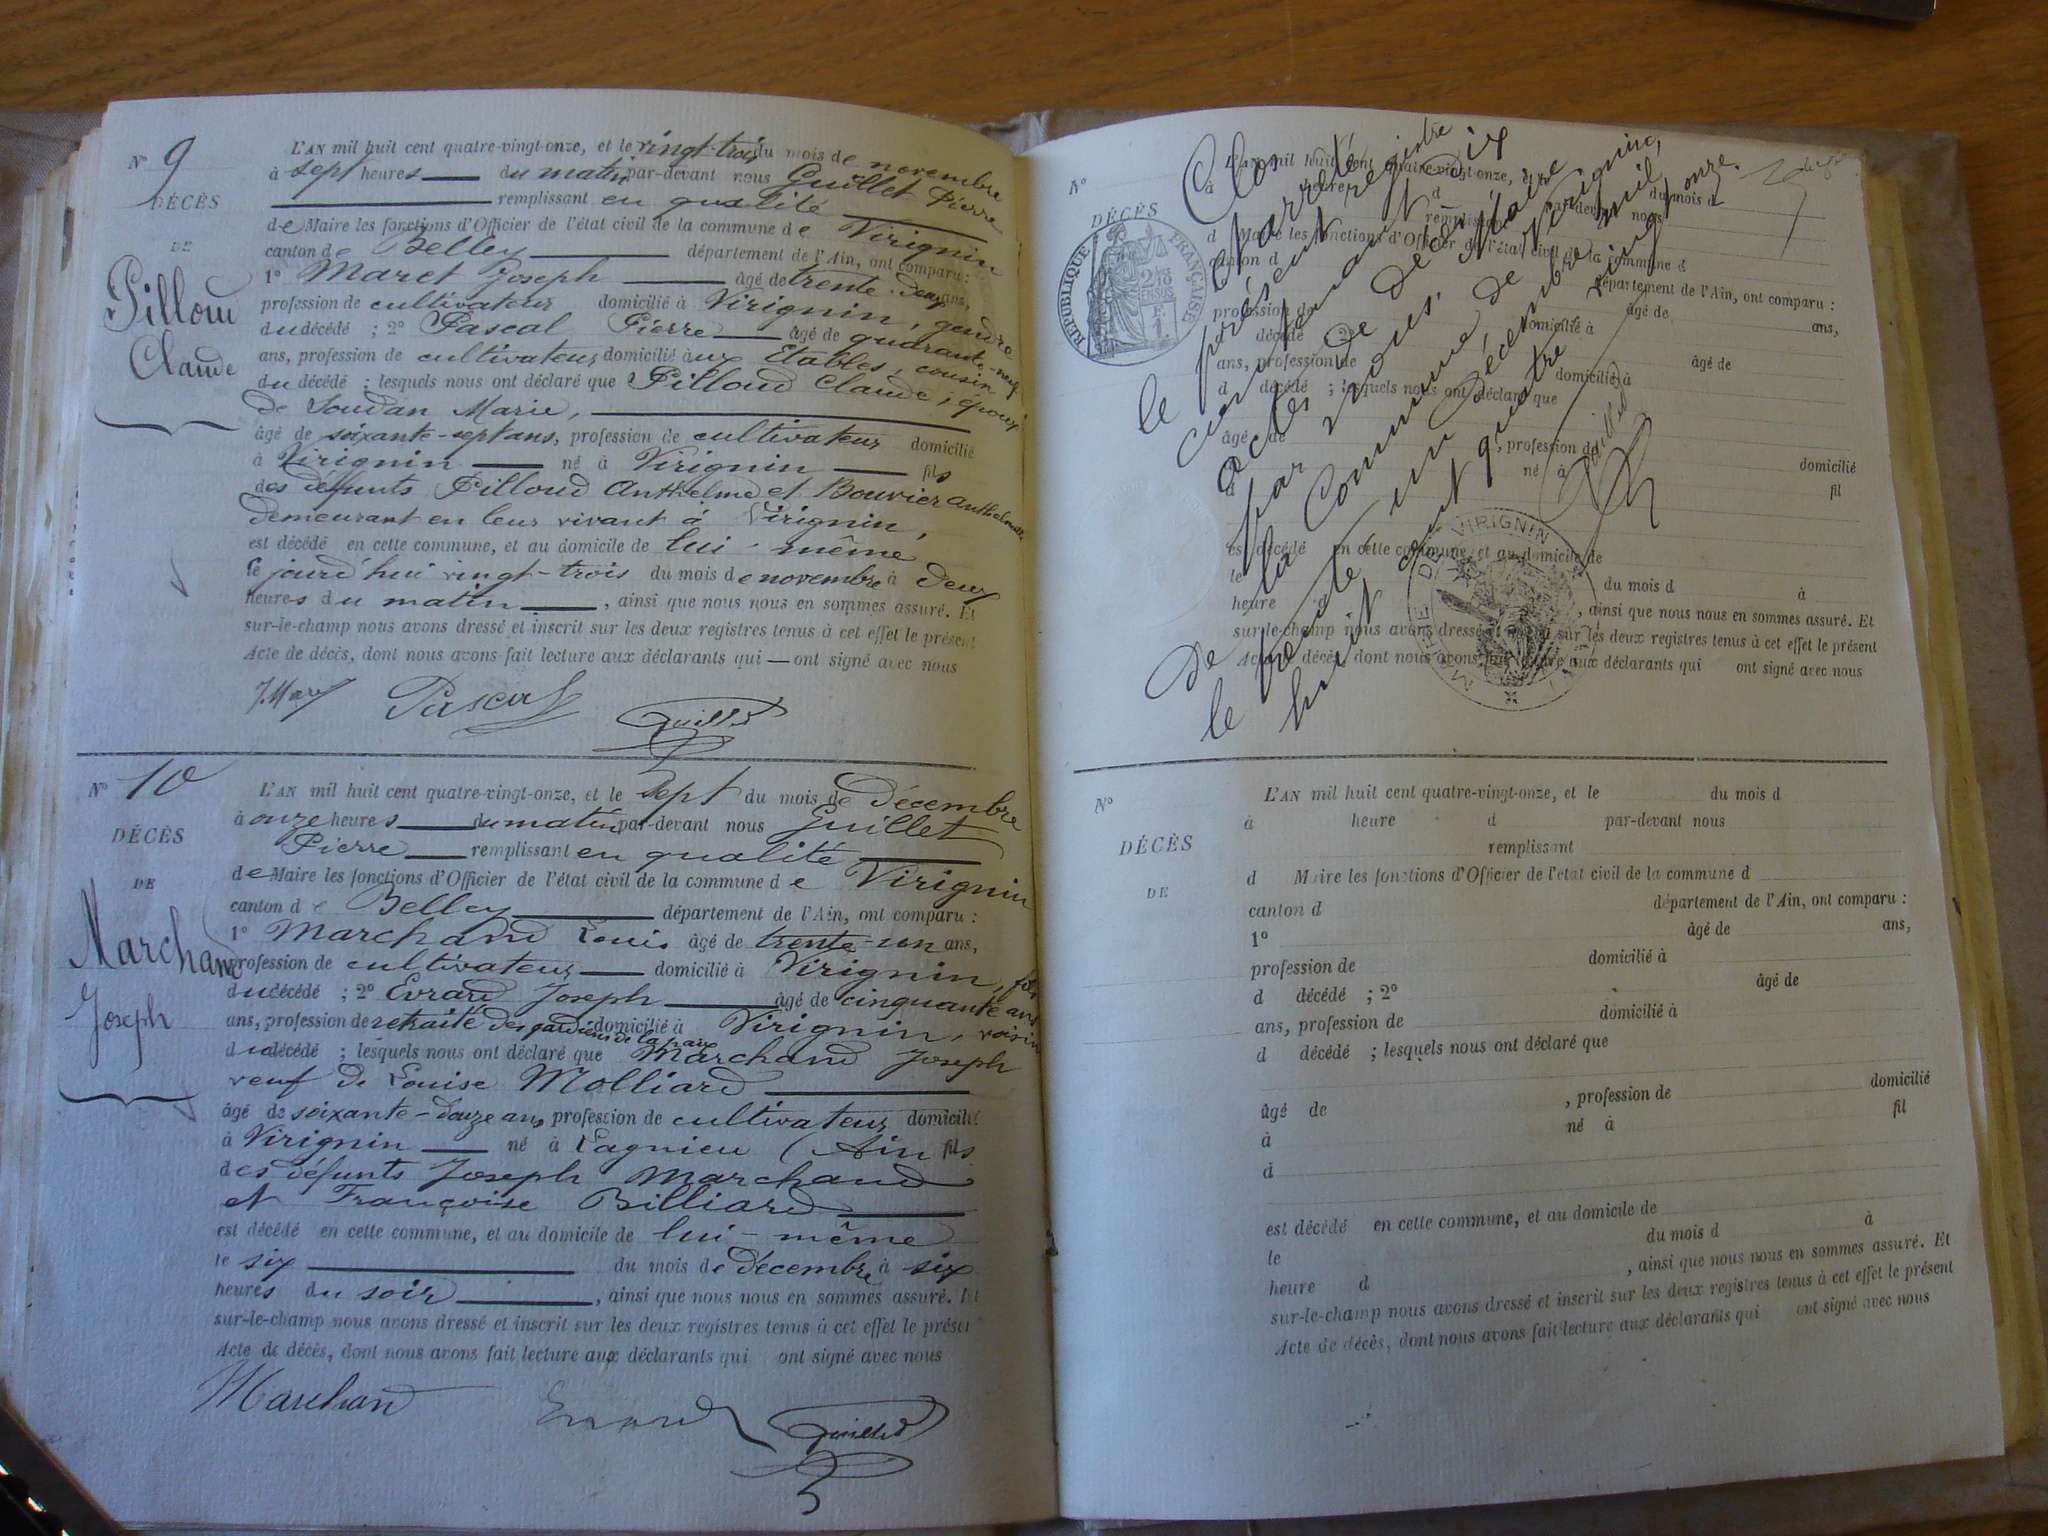 N° 9
DÉCÈS
DE
Pilloud
Claude
L'AN mil huit cent quatre-vingt-onze, et le vingt-trois du mois de novembre
à sept heures du matin par-devant nous Guillet Pierre
remplissant en qualité
de Maire les fonctions d'Officier de l'état civil de la commune de Virignin
canton de Belley département de l'Ain, ont comparu :
1° Maret Joseph âgé de trente-deux ans,
profession de cultivateur domicilié à Virignin, gendre
du décédé ; 2° Pascal Pierre âgé de quarante-neuf
ans, profession de cultivateur domicilié aux Etables, cousin
du décédé ; lesquels nous ont déclaré que Pilloud Claude, époux
de Soudan Marie,
âgé de soixante-sept ans, profession de cultivateur domicilié
à Virignin né à Virignin fils
des défunts Pilloud Anthelme et Bouvier Anthelmette
demeurant en leur vivant à Virignin,
est décédé en cette commune, et au domicile de lui-même
le jourd'hui vingt-trois du mois de novembre à deux
heures du matin, ainsi que nous nous en sommes assuré. Et
sur-le-champ nous avons dressé et inscrit sur les deux registres tenus à cet effet le présent
Acte de décès, dont nous avons fait lecture aux déclarants qui — ont signé avec nous
J. Maret Pascal Guillet
N° 10
DÉCÈS
DE
Marchand
Joseph
L'AN mil huit cent quatre-vingt-onze, et le sept du mois de décembre
à onze heures du matin par-devant nous Guillet
Pierre remplissant en qualité
de Maire les fonctions d'Officier de l'état civil de la commune de Virignin
canton de Belley département de l'Ain, ont comparu :
1° Marchand Louis âgé de trente-un ans,
profession de cultivateur domicilié à Virignin, fils
du décédé ; 2° Evrard Joseph âgé de cinquante ans
ans, profession de retraité des gardiens de la paix domicilié à Virignin, voisin
du décédé ; lesquels nous ont déclaré que Marchand Joseph
veuf de Louise Molliard
âgé de soixante-douze ans, profession de cultivateur domicilié
à Virignin né à Lagnieu (Ain fils
des défunts Joseph Marchand
et Françoise Billiard
est décédé en cette commune, et au domicile de lui-même
le six du mois de décembre à six
heures du soir, ainsi que nous nous en sommes assuré. Et
sur-le-champ nous avons dressé et inscrit sur les deux registres tenus à cet effet le présent
Acte de décès, dont nous avons fait lecture aux déclarants qui ont signé avec nous
Marchand Evrard Guillet
N°
DÉCÈS
RÉPUBLIQUE FRANÇAISE
L'AN mil huit cent quatre-vingt-onze, et le du mois d
à heure d par-devant nous
remplissant
d Maire les fonctions d'Officier de l'état civil de la commune d
canton d département de l'Ain, ont comparu :
âgé de ans,
profession de domicilié à
d décédé ; 2° âgé de
ans, profession de domicilié à
d décédé ; lesquels nous ont déclaré que
âgé de , profession de domicilié
à né à fil
d
est décédé en cette commune, et au domicile de
le du mois d à
heure d , ainsi que nous nous en sommes assuré. Et
sur-le-champ nous avons dressé et inscrit sur les deux registres tenus à cet effet le présent
Acte de décès, dont nous avons fait lecture aux déclarants qui ont signé avec nous
Clos et arrêté
le présent registre
contenant dix
actes de décès,
par nous, Maire
de la Commune de Virignin,
le trente un décembre mil
huit cent quatre vingt onze.
Guillet
MAIRIE DE VIRIGNIN
N°
DÉCÈS
DE
L'AN mil huit cent quatre-vingt-onze, et le du mois d
à heure d par-devant nous
remplissant
d Maire les fonctions d'Officier de l'état civil de la commune d
canton d département de l'Ain, ont comparu :
1° âgé de ans,
profession de domicilié à
d décédé ; 2° âgé de
ans, profession de domicilié à
d décédé ; lesquels nous ont déclaré que
âgé de , profession de domicilié
à né à fil
d
est décédé en cette commune, et au domicile de
le du mois d à
heure d , ainsi que nous nous en sommes assuré. Et
sur-le-champ nous avons dressé et inscrit sur les deux registres tenus à cet effet le présent
Acte de décès, dont nous avons fait lecture aux déclarants qui ont signé avec nous